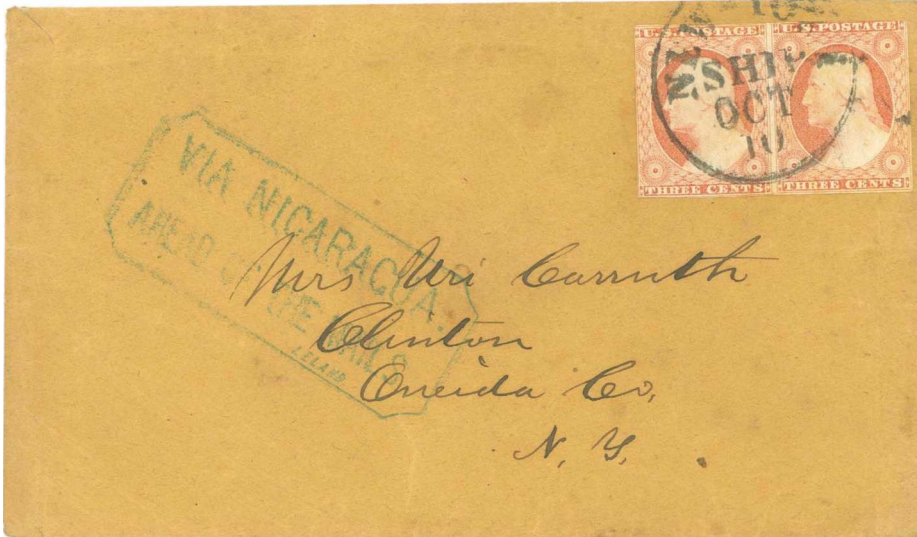 U.S. POSTAGE U.S. POSTAGE
NEW-YORK
SHIP
OCT
10
THREE CENTS THREE CENTS
VIA NICARAGUA.
AHEAD OF THE MAILS
LELAND
Mrs Uri Carruth
Clinton
Oneida Co,
N. Y.